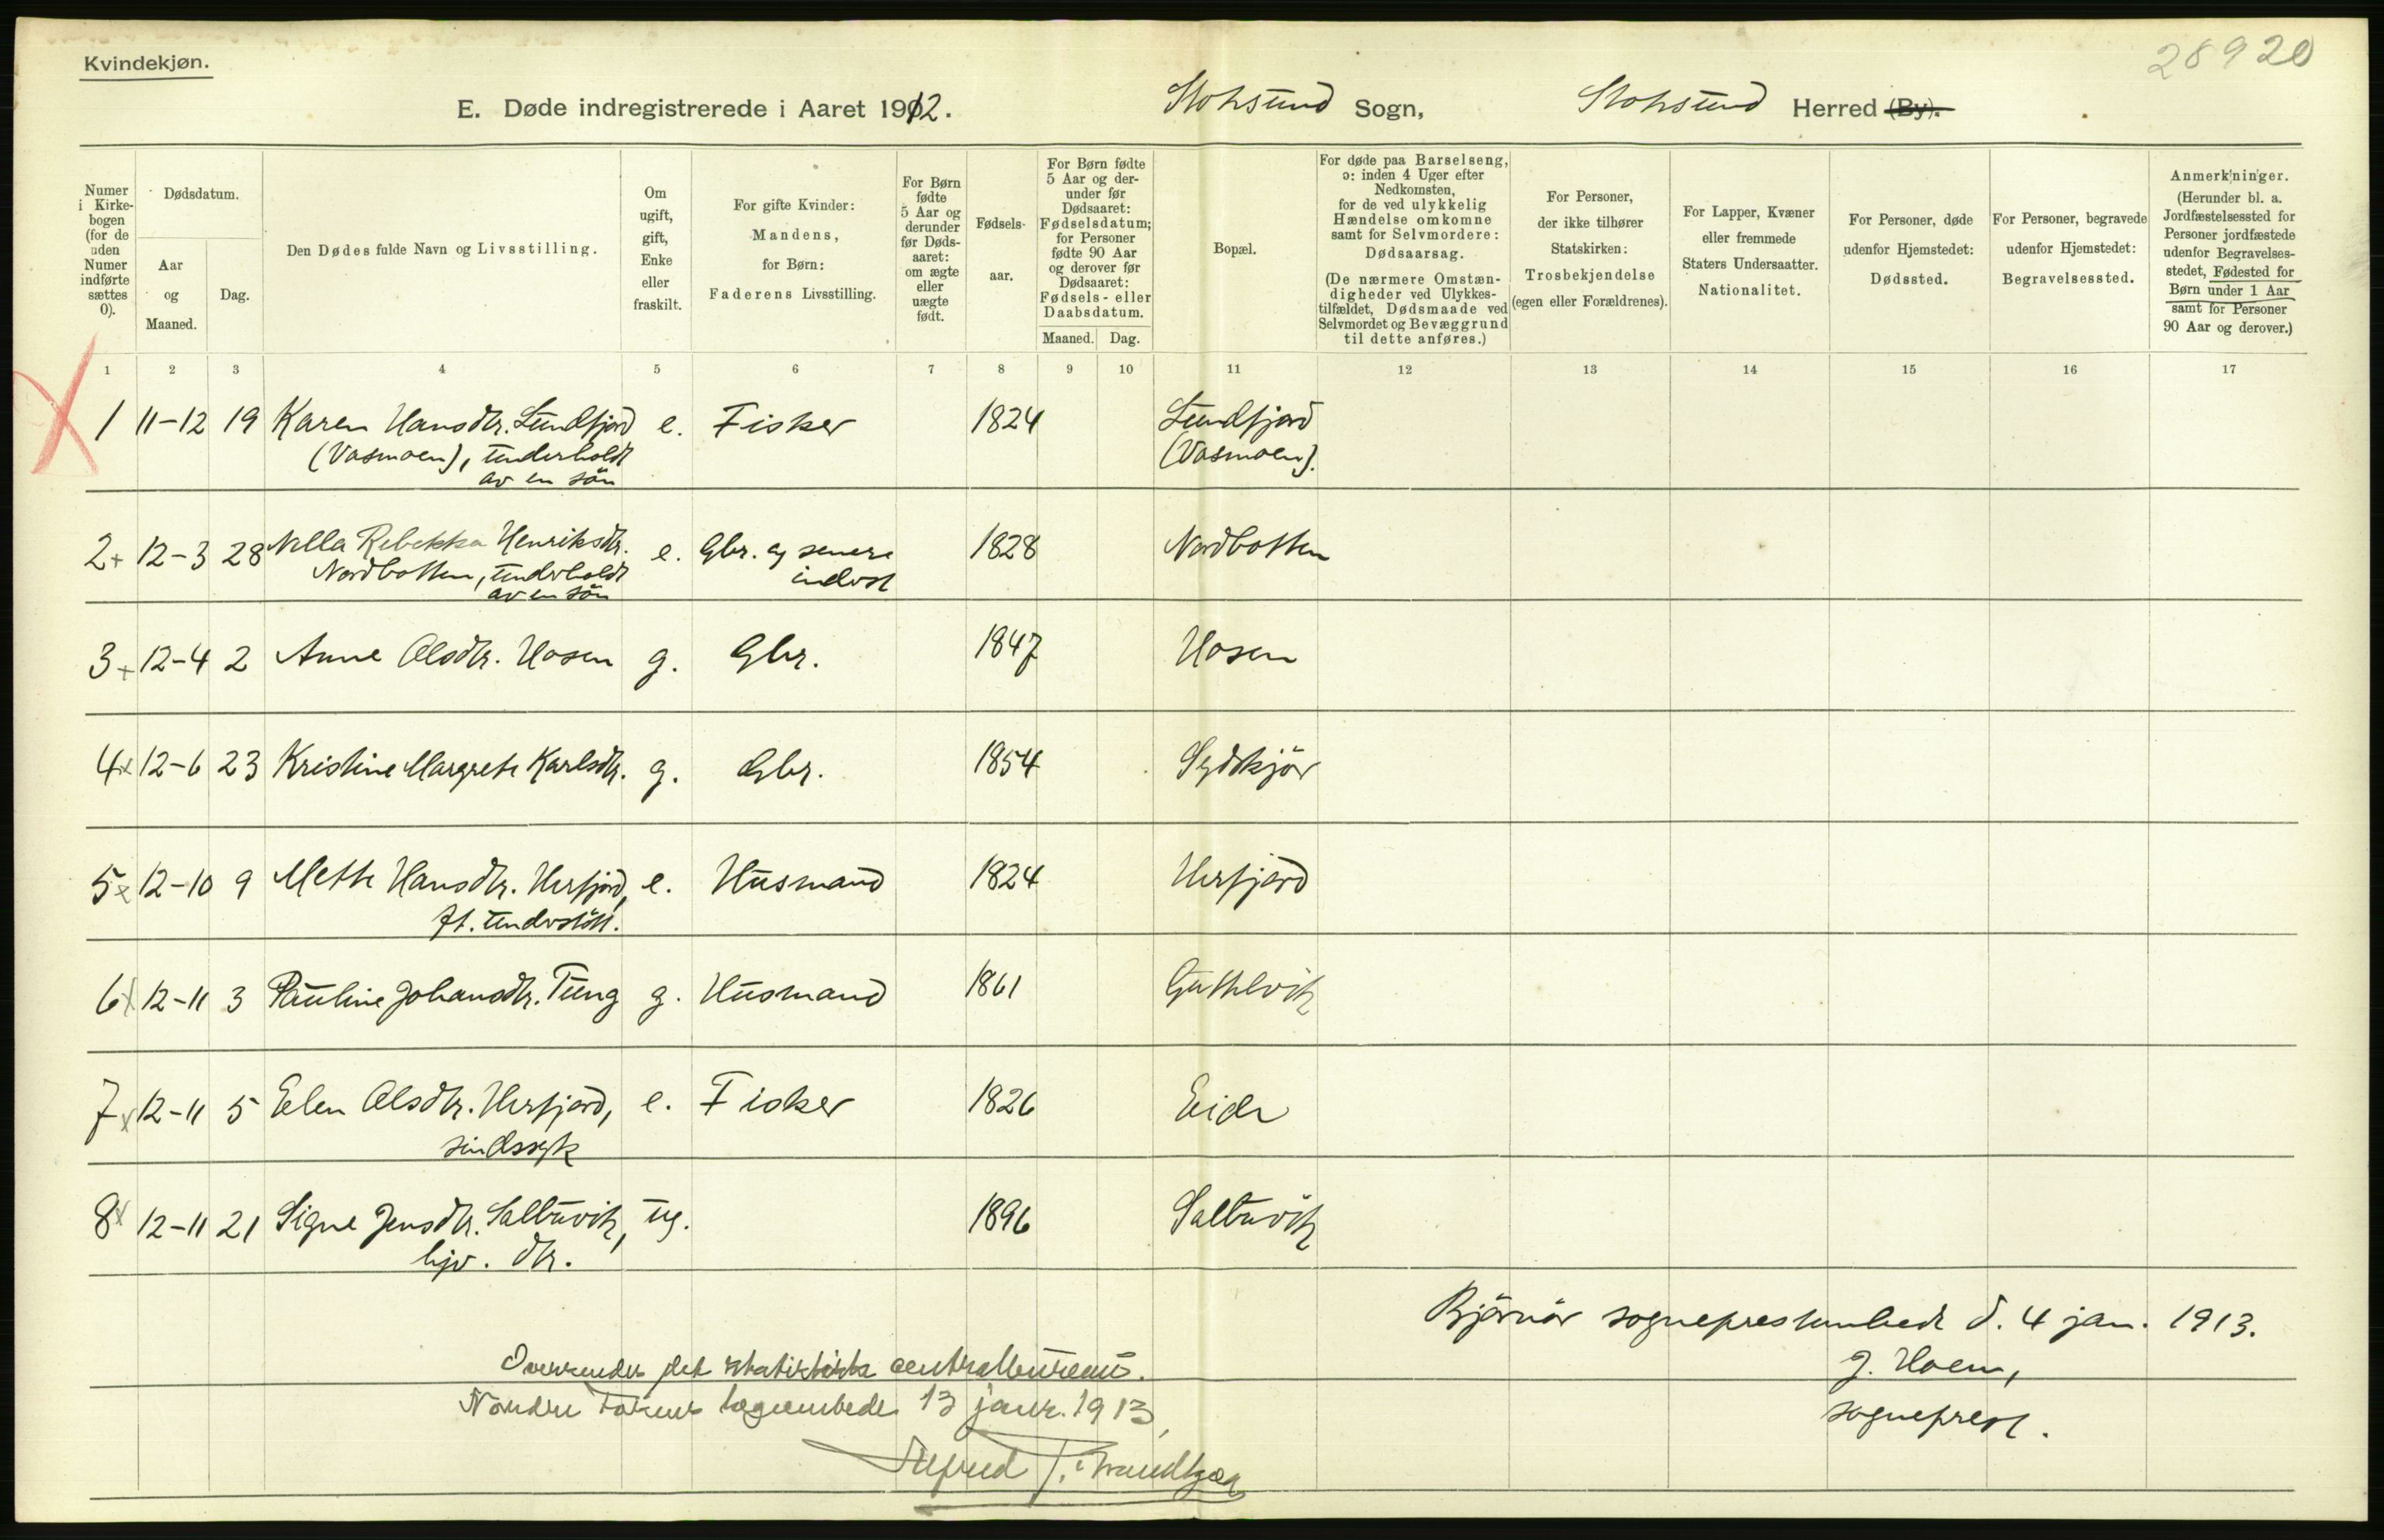 Kvindekjøn.
28920
E. Døde indregistrerede i Aaret 1912. Stoksund Sogn, Stoksund Herred (By).
Numer i Kirkebogen (for de uden Numer indførte sættes 0).
Dødsdatum.
Aar og Maaned.
Dag.
Den Dødes fulde Navn og Livsstilling.
Om ugift, gift, Enke eller fraskilt.
For gifte Kvinder: Mandens, for Børn: Faderens Livsstilling.
For Børn fødte 5 Aar og derunder før Dødsaaret: om ægte eller uægte født.
Fødselsaar.
For Børn fødte 5 Aar og derunder før Dødsaaret: Fødselsdatum; for Personer fødte 90 Aar og derover før Dødsaaret: Fødsels- eller Daabsdatum.
Maaned. Dag.
Bopæl.
For døde paa Barselseng, ɔ: inden 4 Uger efter Nedkomsten, for de ved ulykkelig Hændelse omkomne samt for Selvmordere: Dødsaarsag.
(De nærmere Omstændigheder ved Ulykkestilfældet, Dødsmaade ved Selvmordet og Bevæggrund til dette anføres.)
For Personer, der ikke tilhører Statskirken: Trosbekjendelse (egen eller Forældrenes).
For Lapper, Kvæner eller fremmede Staters Undersaatter. Nationalitet.
For Personer, døde udenfor Hjemstedet: Dødssted.
For Personer, begravede udenfor Hjemstedet: Begravelsessted.
Anmerkninger.
(Herunder bl. a. Jordfæstelsessted for Personer jordfæstede udenfor Begravelsesstedet, Fødested for Børn under 1 Aar samt for Personer 90 Aar og derover.)
1 2 3 4 5 6 7 8 9 10 11 12 13 14 15 16 17
1 11-12 19 Karen Hansdtr. Sundfjord e. Fisker 1824 Sundfjord
(Vasmoen), underholdt (Vasmoen).
av en søn
2 12-3 28 Nella Rebekka Henriksdtr. e. Gbr. og senere 1828 Nordbotten
Nordbotten, underholdt inderst
av en søn
3 12-4 2 Anne Olsdtr. Hosen g. Gbr. 1847 Hosen
4 12-6 23 Kristine Margrete Karlsdtr. g. Gbr. 1854 Sydskjør
5 12-10 9 Mette Hansdtr. Herfjord, e. Husmand 1824 Herfjord
ft. understøtt.
6 12-11 3 Pauline Johansdtr. Tung g. Husmand 1861 Guthelvik
7 12-11 5 Elen Olsdtr. Herfjord, e. Fisker 1826 Eide
sindssyk
8 12-11 21 Signe Jensdtr. Saltuvik, ug. 1896 Saltuvik
hjv. dtr.
Bjørnør sogneprestembede d. 4 jan. 1913.
J. Hoem,
sogneprest.
Oversendes det statistiske centralbureau.
Nordre Fosens lægeembede 13 janr. 1913,